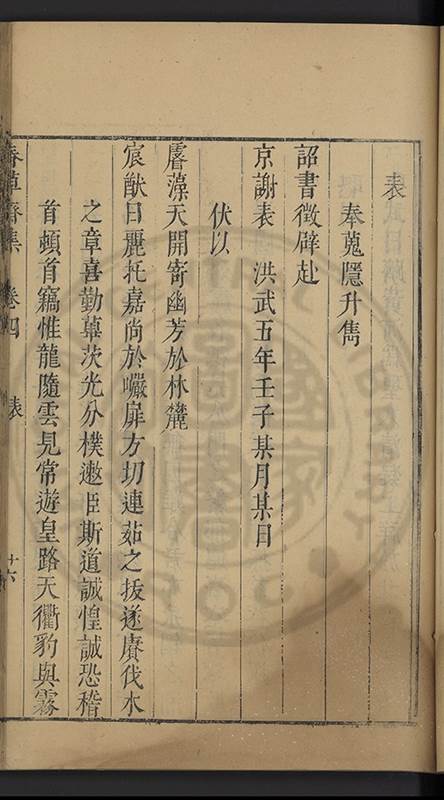 表
奉蒐隱升雋
詔書徵辟赴
京謝表 洪武五年壬子某月某日
伏以
睿藻天開寄幽芳於林麓
宸猷日麗托嘉尚於巖扉方切連茹之拔遂賡伐木
之章喜動蓽茨光分樸遫臣斯道誠惶誠恐稽
首頓首竊惟龍隨雲見常遊皇路天衢豹與霧
春草齋集 卷四 表 十六